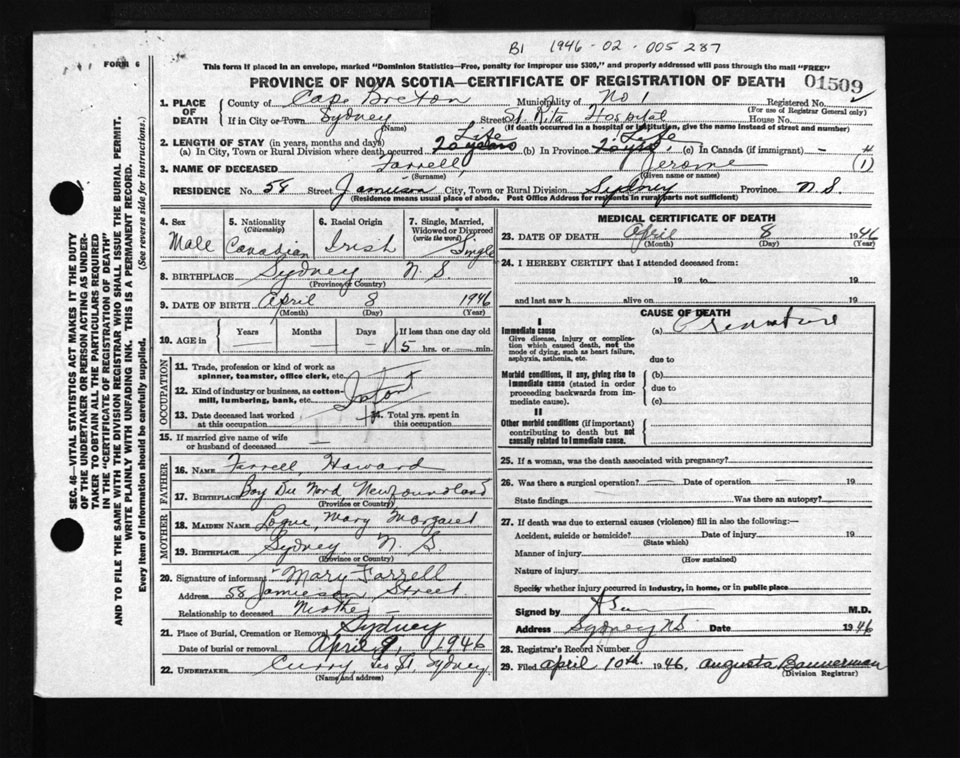 B1 1946-02-005287
FORM 6
This form if placed in an envelope, marked "Dominion Statistics—Free, penalty for improper use $300," and properly addressed will pass through the mail "FREE"
PROVINCE OF NOVA SCOTIA—CERTIFICATE OF REGISTRATION OF DEATH 01509
1. PLACE OF DEATH County of Cape Breton Municipality of No 1 Registered No.
(For use of Registrar General only)
If in City or Town Sydney Street St. Rita Hospital House No.
(Name) (If death occurred in a hospital or institution, give the name instead of street and number)
2. LENGTH OF STAY (in years, months and days) Life Life
(a) In City, Town or Rural Division where death occurred 20 years (b) In Province 20 yrs (c) In Canada (if immigrant) —
3. NAME OF DECEASED Farrell, Jerome (1)
(Surname) (Given name or names)
RESIDENCE No. 58 Street Jamieson City, Town or Rural Division Sydney Province N.S.
(Residence means usual place of abode. Post Office Address for residents in rural parts not sufficient)
4. Sex Male
5. Nationality (Citizenship) Canadian
6. Racial Origin Irish
7. Single, Married, Widowed or Divorced (write the word) Single
8. BIRTHPLACE Sydney N. S.
(Province or Country)
9. DATE OF BIRTH April 8 1946
(Month) (Day) (Year)
10. AGE in Years Months Days If less than one day old
— — — 5 hrs. or min.
OCCUPATION
11. Trade, profession or kind of work as spinner, teamster, office clerk, etc.
12. Kind of industry or business, as cotton mill, lumbering, bank, etc. Infant
13. Date deceased last worked at this occupation
14. Total yrs. spent in this occupation
15. If married give name of wife or husband of deceased —
FATHER
16. NAME Farrell, Howard
17. BIRTHPLACE Bay Du Nord, Newfoundland
(Province or Country)
MOTHER
18. MAIDEN NAME Logue, Mary Margaret
19. BIRTHPLACE Sydney N. S.
(Province or Country)
20. Signature of informant Mary Farrell
Address 58 Jamieson Street
Relationship to deceased Mother
21. Place of Burial, Cremation or Removal Sydney
Date of burial or removal April 9, 1946
22. UNDERTAKER Curry Geo St, Sydney
(Name and address)
MEDICAL CERTIFICATE OF DEATH
23. DATE OF DEATH April 8 1946
(Month) (Day) (Year)
24. I HEREBY CERTIFY that I attended deceased from:
19 to 19
and last saw h alive on 19
CAUSE OF DEATH
I
Immediate cause (a) Premature
Give disease, injury or complication which caused death, not the mode of dying, such as heart failure, asphyxia, asthenia, etc.
due to
Morbid conditions, if any, giving rise to immediate cause (stated in order proceeding backwards from immediate cause).
(b)
due to
(c)
II
Other morbid conditions (if important) contributing to death but not causally related to immediate cause.
25. If a woman, was the death associated with pregnancy?
26. Was there a surgical operation? Date of operation 19
State findings Was there an autopsy?
27. If death was due to external causes (violence) fill in also the following:—
Accident, suicide or homicide? Date of injury 19
(State which)
Manner of injury
(How sustained)
Nature of injury
Specify whether injury occurred in industry, in home, or in public place
Signed by M.D.
Address Sydney NS Date 1946
28. Registrar's Record Number
29. Filed April 10th 1946. Augusta Bannerman
(Division Registrar)
SEC. 46—VITAL STATISTICS ACT MAKES IT THE DUTY
OF THE UNDERTAKER OR PERSON ACTING AS UNDER-
TAKER TO OBTAIN ALL THE PARTICULARS REQUIRED
IN THE "CERTIFICATE OF REGISTRATION OF DEATH"
AND TO FILE THE SAME WITH THE DIVISION REGISTRAR WHO SHALL ISSUE THE BURIAL PERMIT.
WRITE PLAINLY WITH UNFADING INK. THIS IS A PERMANENT RECORD.
Every item of information should be carefully supplied. (See reverse side for instructions.)